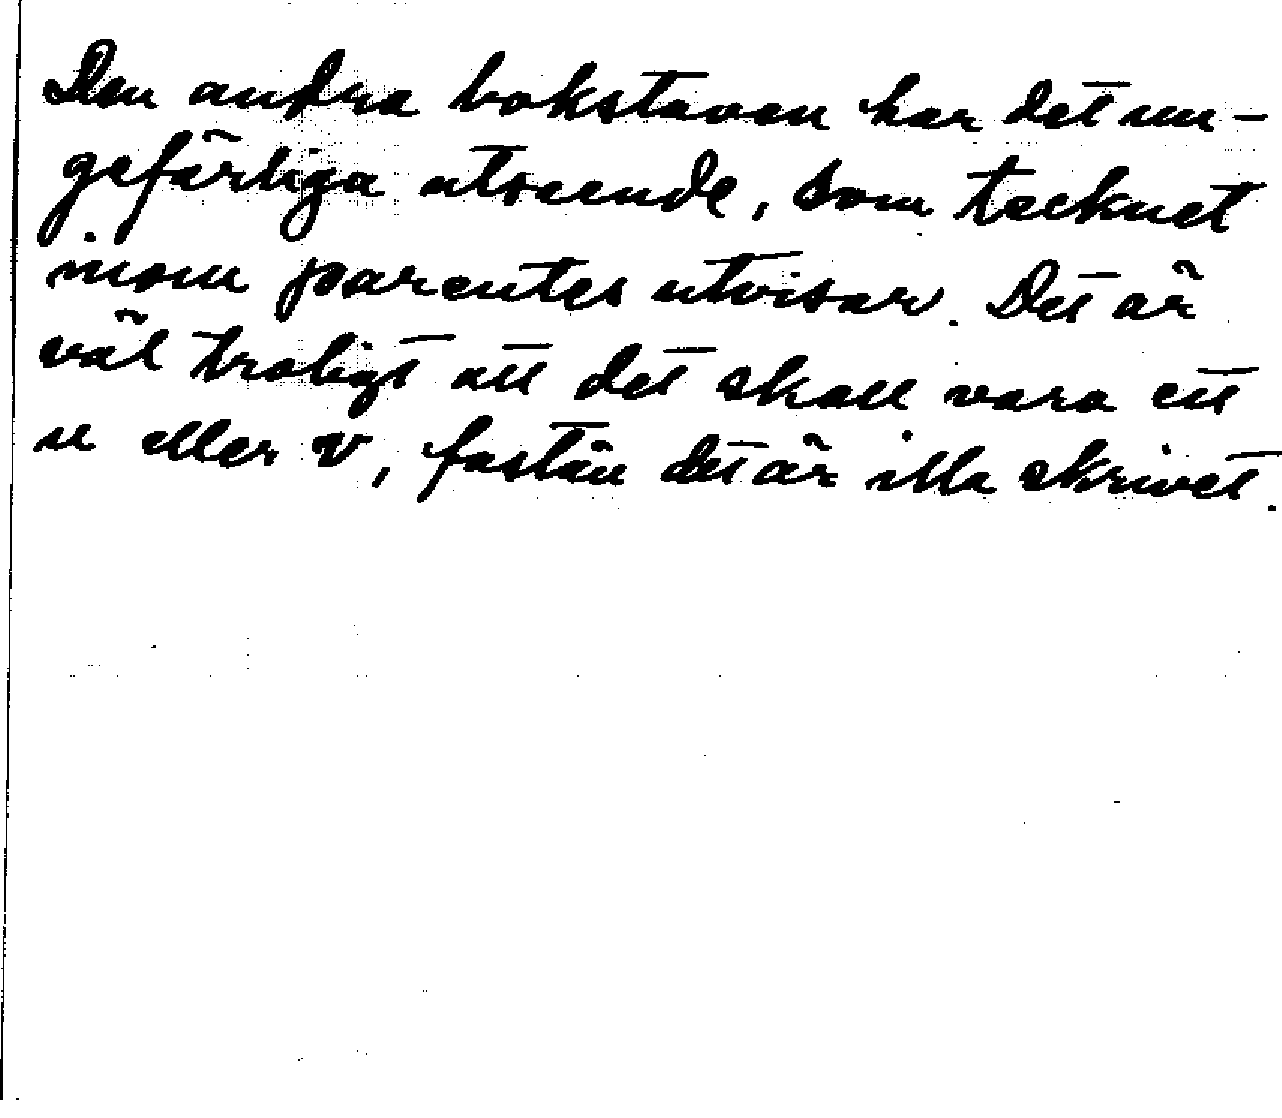 Den andra bokstaven har det un-
gefärliga utseende, som tecknet
inom parentes utvisar. Det är
väl troligt att det skall vara ett
u eller v, fastän det är illa skrivet.